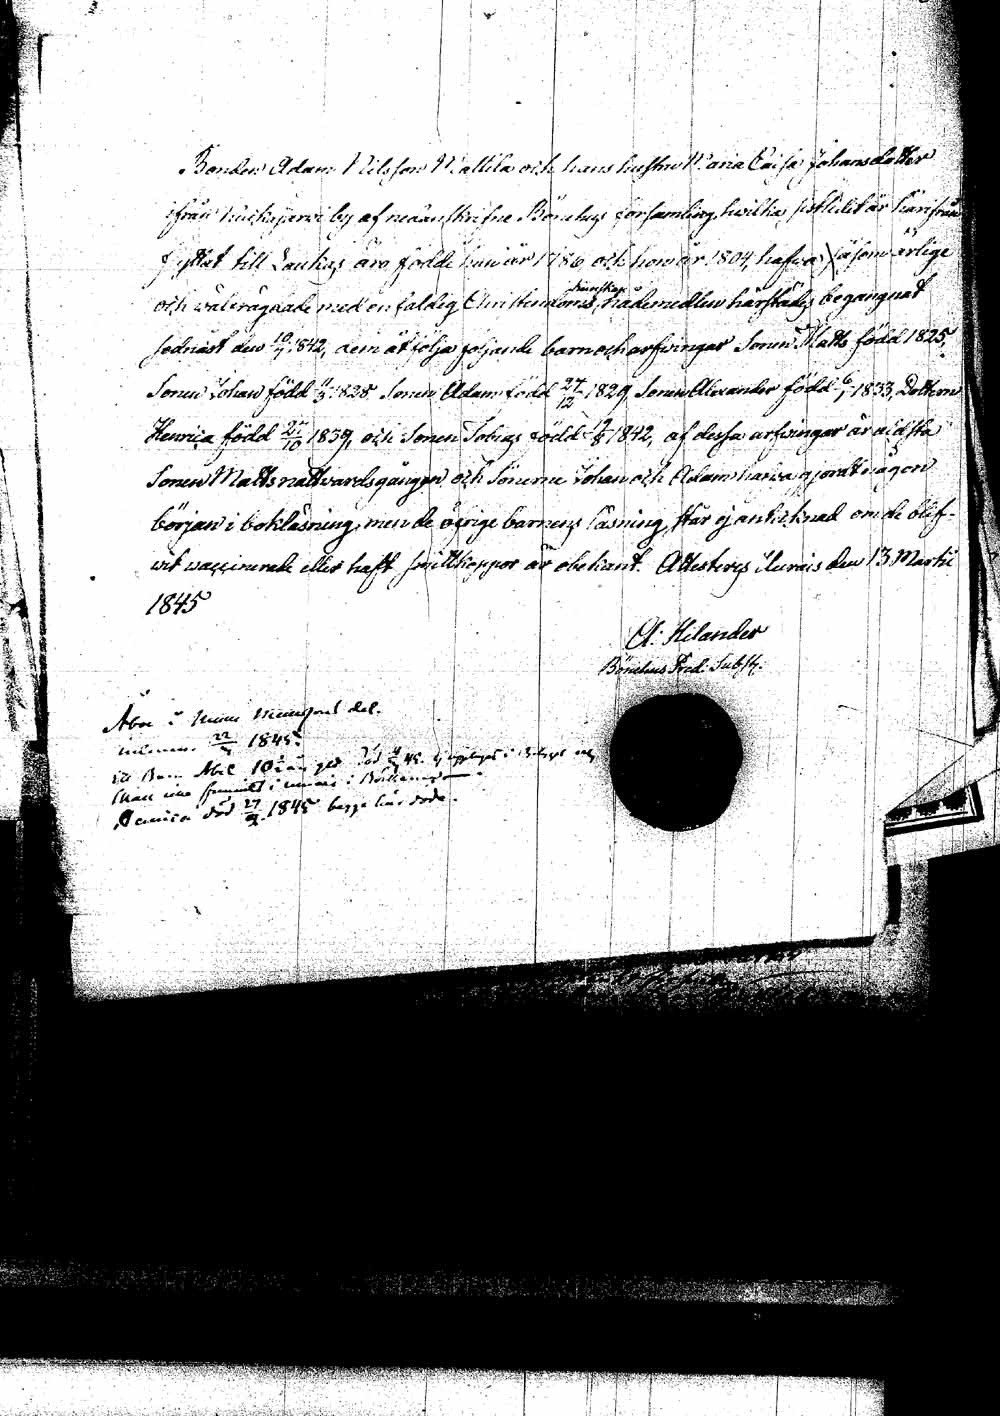 Bonden Adam Nilsson Mattila och hans hustru Maria Caisa Johansdotter
ifrån by af nedanskrifne församling, hwilka sistlidit år härifrån
flyttat till Laukas äro födde han år 1786 och hon år 1804, hafwa såsom ärlige
och wälfrägdade med enfaldig Christendoms kunskap, nådemedlen härstädes begangnat
sednast den 10/7 1842, dem åtfölja följande barn och arfwingar Sonen Matts född 1825,
Sonen Johan född 1828 Sonen Adam född 27/12 1829, Sonen Alexander född 6/1 1833, Dottern
Henrica född 27/10 1839, och Sonen Tobias född 1842, af dessa arfwingar är äldsta
Sonen Matts nattvardsgången och Sönerne Johan och Adam hafwa gjordt någon
början i bokläsning, men de öfrige barnens läsning står ej anteknad om de blif-
wit waccinerade eller haft smittkoppor är obekant. Attesteras den 13 Martii
1845
A. Hilander
Pred.
i
1845.
Barn Abel
i
Henrica död 27/9 1845 begge här döde.